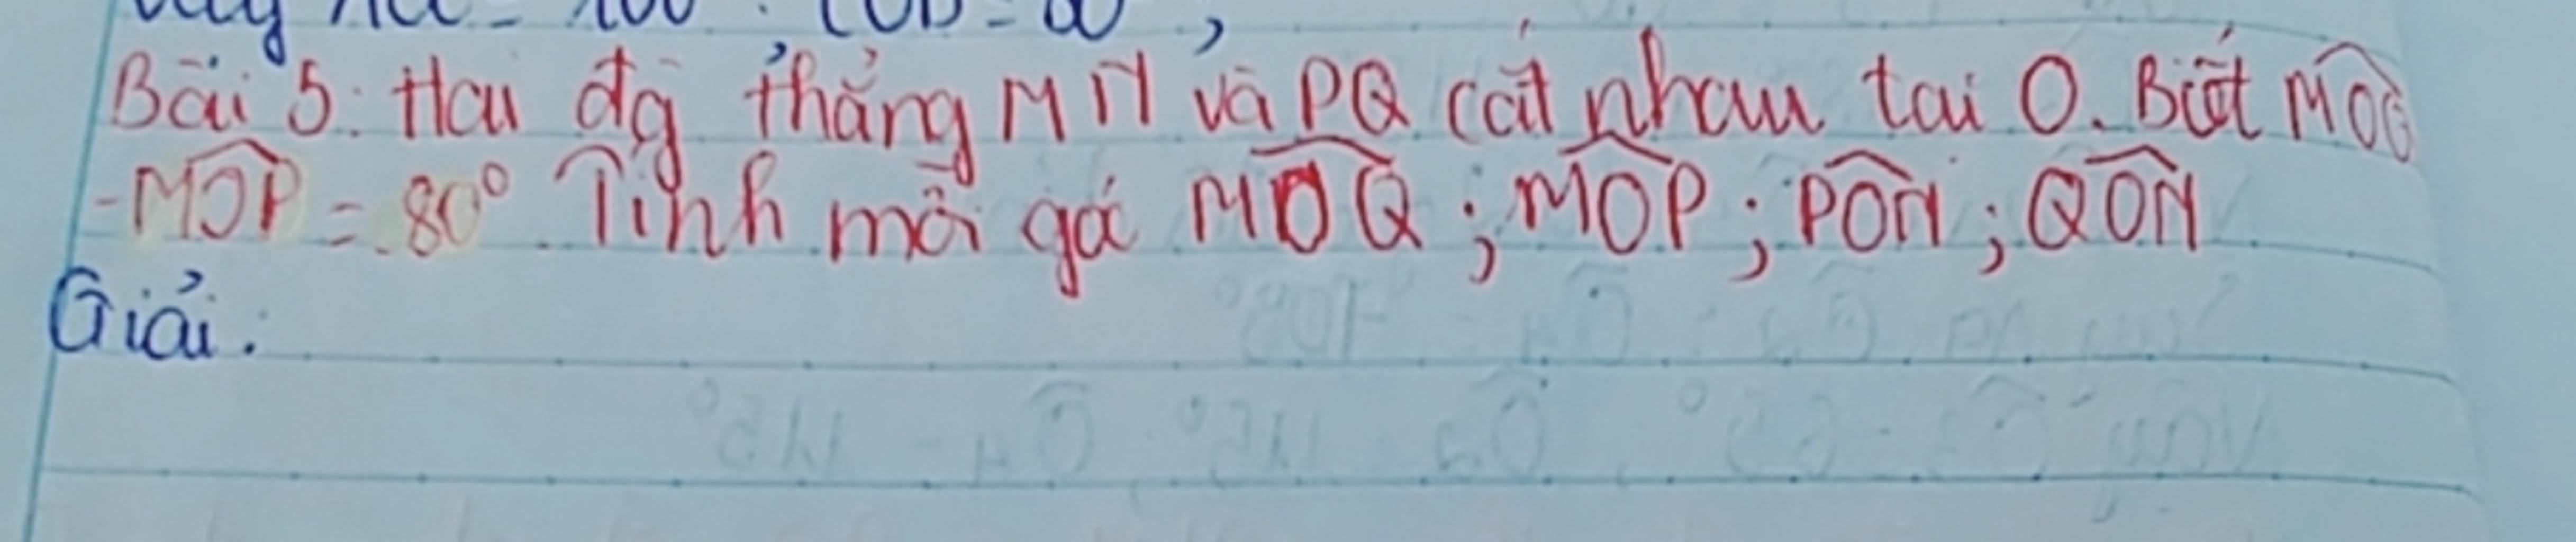 Bài 5: Hai đg thẳng MN và PQ cắt nhau tai O. Biết MOQ
-MOP = 80° Tính mỗi gó MOQ ; MOP ; PON ; QON
Giải: